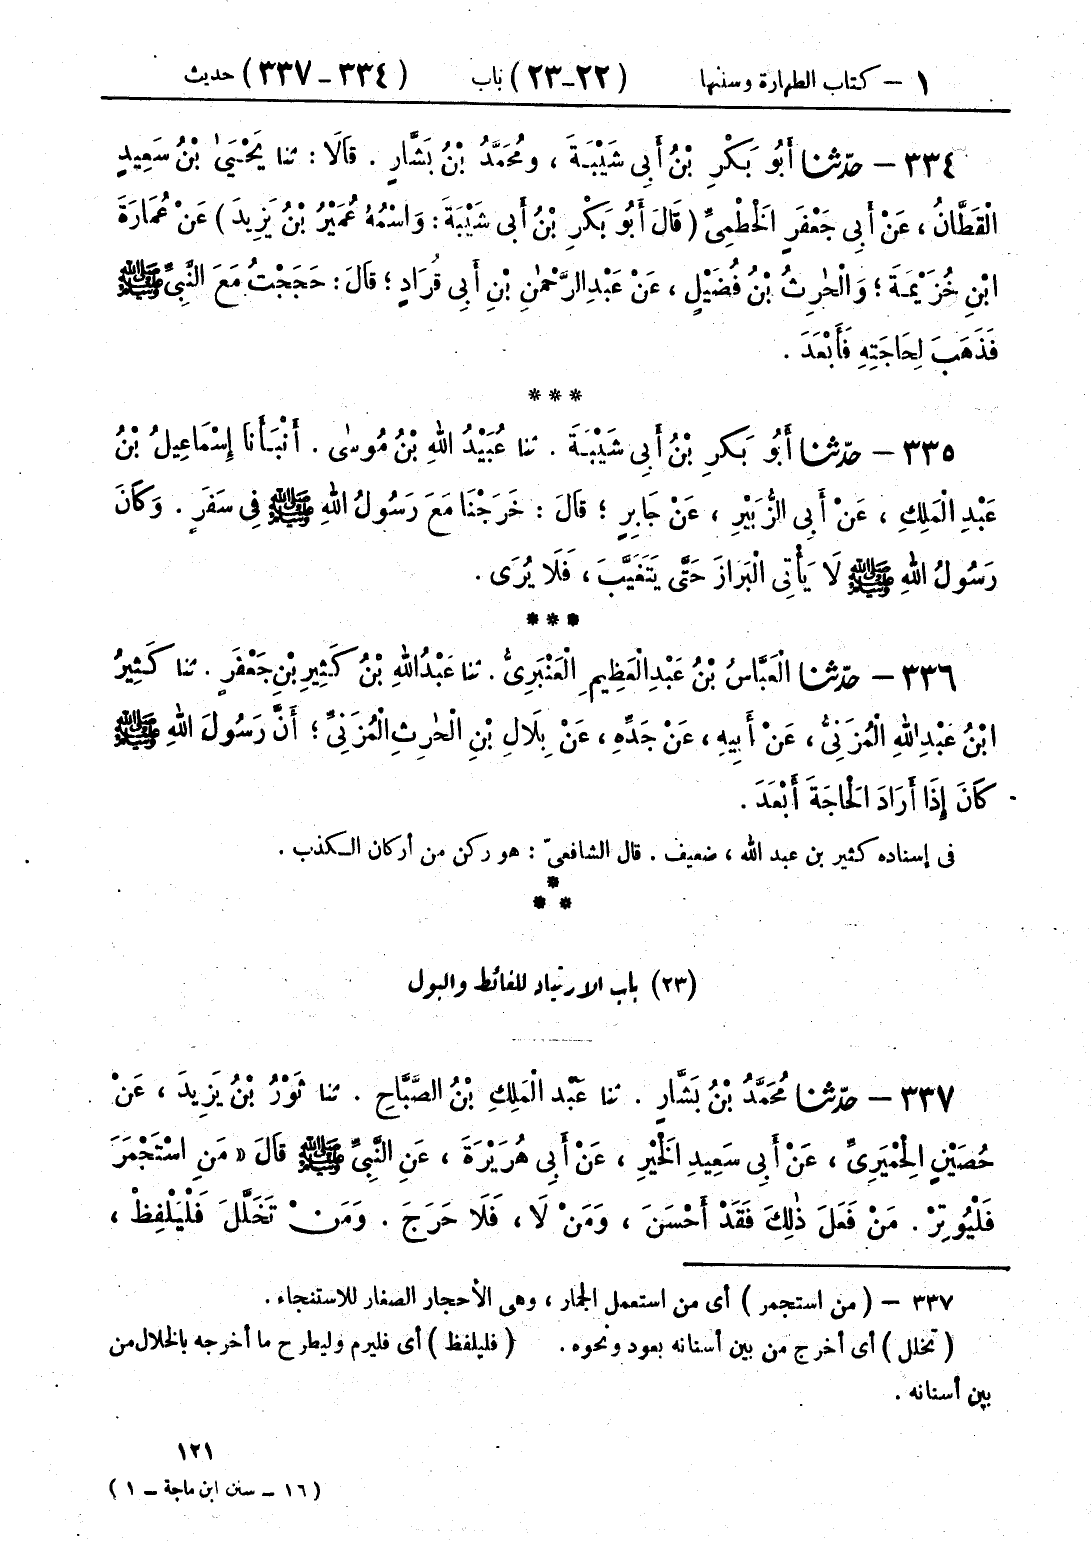 ١ – كتاب الطهارة وسننها (٢٢-٢٣) باب (٣٣٤-٣٣٧) حديث
٣٣٤ – حدّثنا أَبُو بَكْرِ بْنُ أَبِي شَيْبَةَ ، ومُحَمَّدُ بْنُ بَشَّارٍ . قَالَا : ثنا يَحْيَىٰ بْنُ سَعِيدٍ
الْقَطَّانُ ، عَنْ أَبِي جَعْفَرٍ الْخَطْمِيِّ ( قَالَ أَبُو بَكْرِ بْنُ أَبِي شَيْبَةَ : وَاسْمُهُ عُمَيْرُ بْنُ يَزِيدَ ) عَنْ عُمَارَةَ
ابْنِ خُزَيْمَةَ ؛ وَالْحٰرِثُ بْنُ فُضَيْلٍ ، عَنْ عَبْدِ الرَّحْمٰنِ بْنِ أَبِي قُرَادٍ ؛ قَالَ : حَجَجْتُ مَعَ النَّبِيِّ ﷺ
فَذَهَبَ لِحَاجَتِهِ فَأَبْعَدَ .
* * *
٣٣٥ – حدّثنا أَبُو بَكرِ بْنُ أَبِي شَيْبَةَ . ثنا عُبَيْدُ اللهِ بْنُ مُوسٰى . أَنْبَأَنا إِسْمَاعِيلُ بْنُ
عَبْدِ الْمَلِكِ ، عَنْ أَبِي الزُّبَيْرِ ، عَنْ جَابِرٍ ؛ قَالَ : خَرَجْنَا مَعَ رَسُولُ اللهِ ﷺ فِي سَفَرٍ . وَكَانَ
رَسُولُ اللهِ ﷺ لَا يَأْتِي الْبَرَازَ حَتَّى يَتَغَيَّبَ ، فَلَا يُرَى .
* * *
٣٣٦ – حدّثنا الْعَبَّاسُ بْنُ عَبْدِ الْعَظِيمِ الْعَنْبَرِيُّ . ثنا عَبْدُ اللهِ بْنُ كَثِيرِ بْنِ جَعْفَرٍ . ثنا كَثِيرُ
ابْنُ عَبْدِ اللهِ الْمُزَنِيُّ ، عَنْ أَبِيهِ ، عَنْ جَدِّهِ ، عَنْ بِلَالِ بْنِ الْحٰرِثِ الْمُزَنِيِّ ؛ أَنَّ رَسُولَ اللهِ ﷺ
كَانَ إِذَا أَرَادَ الْحَاجَةَ أَبْعَدَ .
فى إسناده كثير بن عبد الله ، ضعيف . قال الشافعىّ : هو ركن من أركان الكذب .
*
* *
(٢٣) باب الارتياد للغائط والبول
٣٣٧ – حدّثنا مُحَمَّدُ بْنُ بَشَّارٍ . ثنا عَبْد الْمَلِكِ بْنُ الصَّبَّاحِ . ثنا ثَوْرُ بْنُ يَزِيدَ ، عَنْ
حُصَيْنٍ الْحِمْيَرِيِّ ، عَنْ أَبِي سَعِيدِ الْخَيْرِ ، عَنْ أَبِي هُرَيْرَةَ ، عَنِ النَّبِيِّ ﷺ قَالَ « مَنِ اسْتَجْمَرَ
فَلْيُوتِرْ . مَنْ فَعَلَ ذٰلِكَ فَقَدْ أَحْسَنَ ، وَمَنْ لَا ، فَلَا حَرَجَ . وَمَنْ تَخَلَّلَ فَلْيَلْفِظْ ،
٣٣٧ – ( من استجمر ) أى من استعمل الجمار ، وهى الأحجار الصغار للاستنجاء .
( تخلل ) أى أخرج من بين أسنانه بعود ونحوه . ( فليلفظ ) أى فليرم وليطرح ما أخرجه بالخلال من
بين أسنانه .
١٢١
( ١٦ – سنن ابن ماجة – ١ )